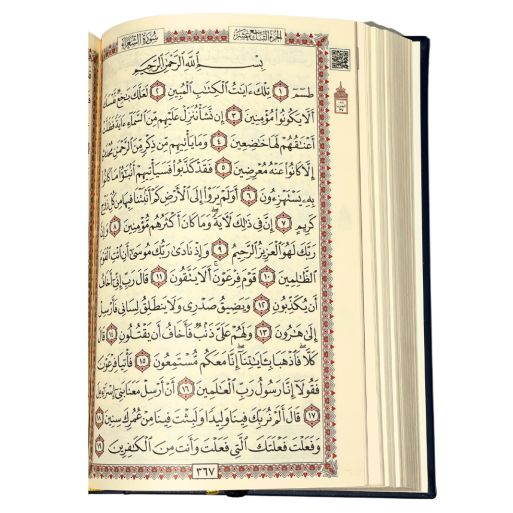 سُورَةُ الشُّعَرَاءِ
الجزء التاسع عشر
بِسْمِ اللَّهِ الرَّحْمَٰنِ الرَّحِيمِ
طسٓمٓ ١ تِلْكَ ءَايَٰتُ ٱلْكِتَٰبِ ٱلْمُبِينِ ٢ لَعَلَّكَ بَٰخِعٌ نَّفْسَكَ
أَلَّا يَكُونُوا۟ مُؤْمِنِينَ ٣ إِن نَّشَأْ نُنَزِّلْ عَلَيْهِم مِّنَ ٱلسَّمَآءِ ءَايَةً فَظَلَّتْ
أَعْنَٰقُهُمْ لَهَا خَٰضِعِينَ ٤ وَمَا يَأْتِيهِم مِّن ذِكْرٍ مِّنَ ٱلرَّحْمَٰنِ مُحْدَثٍ
إِلَّا كَانُوا۟ عَنْهُ مُعْرِضِينَ ٥ فَقَدْ كَذَّبُوا۟ فَسَيَأْتِيهِمْ أَنۢبَٰٓؤُا۟ مَا كَانُوا۟
بِهِۦ يَسْتَهْزِءُونَ ٦ أَوَلَمْ يَرَوْا۟ إِلَى ٱلْأَرْضِ كَمْ أَنۢبَتْنَا فِيهَا مِن كُلِّ زَوْجٍ
كَرِيمٍ ٧ إِنَّ فِى ذَٰلِكَ لَءَايَةً وَمَا كَانَ أَكْثَرُهُم مُّؤْمِنِينَ ٨ وَإِنَّ
رَبَّكَ لَهُوَ ٱلْعَزِيزُ ٱلرَّحِيمُ ٩ وَإِذْ نَادَىٰ رَبُّكَ مُوسَىٰٓ أَنِ ٱئْتِ ٱلْقَوْمَ
ٱلظَّٰلِمِينَ ١٠ قَوْمَ فِرْعَوْنَ أَلَا يَتَّقُونَ ١١ قَالَ رَبِّ إِنِّىٓ أَخَافُ
أَن يُكَذِّبُونِ ١٢ وَيَضِيقُ صَدْرِى وَلَا يَنطَلِقُ لِسَانِى فَأَرْسِلْ
إِلَىٰ هَٰرُونَ ١٣ وَلَهُمْ عَلَىَّ ذَنۢبٌ فَأَخَافُ أَن يَقْتُلُونِ ١٤ قَالَ
كَلَّا فَٱذْهَبَا بِـَٔايَٰتِنَآ إِنَّا مَعَكُم مُّسْتَمِعُونَ ١٥ فَأْتِيَا فِرْعَوْنَ
فَقُولَآ إِنَّا رَسُولُ رَبِّ ٱلْعَٰلَمِينَ ١٦ أَنْ أَرْسِلْ مَعَنَا بَنِىٓ إِسْرَٰٓءِيلَ
١٧ قَالَ أَلَمْ نُرَبِّكَ فِينَا وَلِيدًا وَلَبِثْتَ فِينَا مِنْ عُمُرِكَ سِنِينَ ١٨
وَفَعَلْتَ فَعْلَتَكَ ٱلَّتِى فَعَلْتَ وَأَنتَ مِنَ ٱلْكَٰفِرِينَ ١٩
٣٦٧